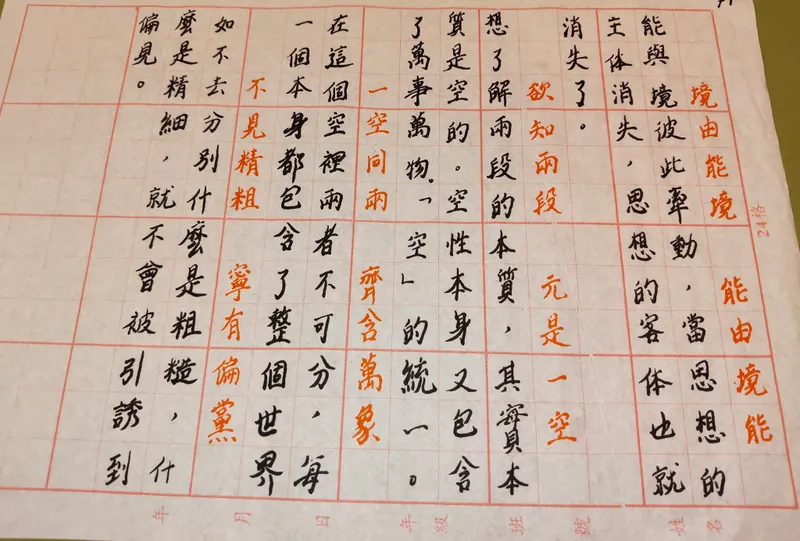 境由能境 能由境能
能與境彼此牽動，當思想的
主体消失，思想的客体也就
消失了。
欲知兩段 元是一空
想了解兩段的本質，其實本
質是空的。空性本身又包含
了萬事萬物。「空」的統一。
一空同兩 齊含萬象
在這個空裡兩者不可分，每
一個本身都包含了整個世界
不見精粗 寧有偏黨
如不去分別什麼是粗糙，什
麼是精細，就不曾被引誘到
偏見。
24格
年 月 日 年級 班 號 姓名